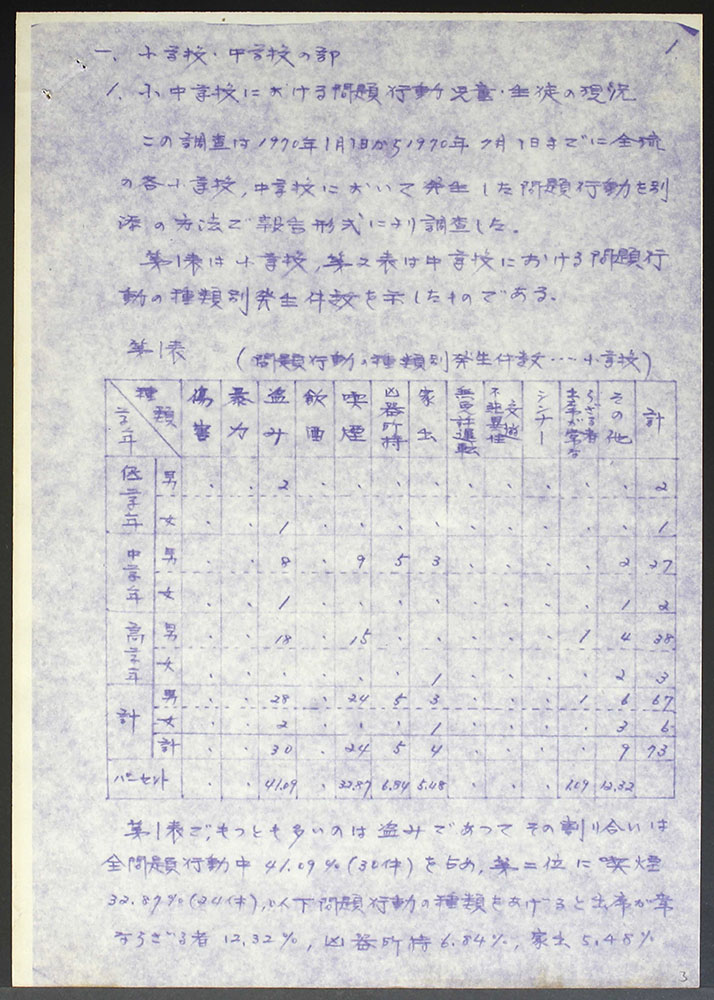 1
一、小学校・中学校の部
1. 小中学校における問題行動児童・生徒の現況
この調査は1970年1月1日から1970年7月1日までに全琉
の各小学校,中学校において発生した問題行動を別
添の方法で報告形式により調査した。
第1表は小学校,第2表は中学校における問題行
動の種類別発生件数を示したものである。
第1表 (問題行動の種類別発生件数‥‥小学校)
種類 学年 傷害 暴力 盗み 飲酒 喫煙 凶器所持 家出 無免許運転 不純異性交遊 シンナー 出席が常ならざる者 その他 計
低学年 男 . . 2 . . . . . . . . . 2
女 . . 1 . . . . . . . . . 1
中学年 男 . . 8 . 9 5 3 . . . . 2 27
女 . . 1 . . . . . . . . 1 2
高学年 男 . . 18 . 15 . . . . . 1 4 38
女 . . . . . . 1 . . . . 2 3
計 男 . . 28 . 24 5 3 . . . 1 6 67
女 . . 2 . . . 1 . . . . 3 6
計 . . 30 . 24 5 4 . . . . 9 73
パーセント . . 41.09 . 32.87 6.84 5.48 . . . 1.09 12.32
第1表で,もっとも多いのは盗みであってその割り合いは
全問題行動中41.09%(30件)を占め,第二位に喫煙
32.87%(24件),以下問題行動の種類をあげると出席が常
ならざる者12.32%,凶器所持6.84%,家出5.48%
3